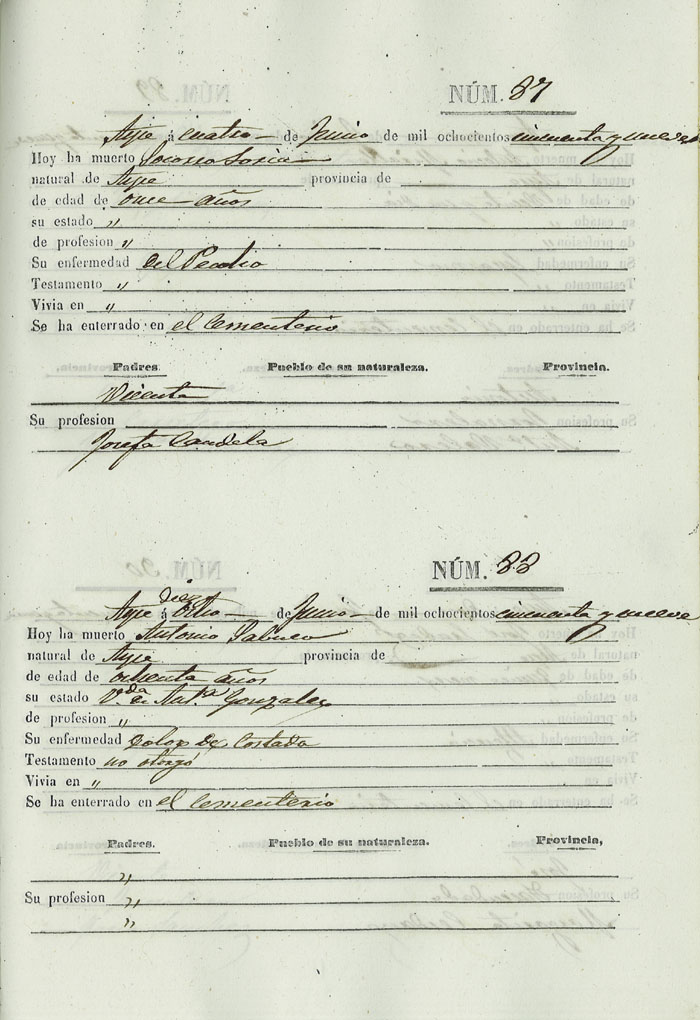 NÚM. 87
Aspe á cuatro de Junio de mil ochocientos cincuenta y nueve
Hoy ha muerto Socorro Soria
natural de Aspe provincia de
de edad de once años
su estado "
de profesion "
Su enfermedad del Pecho
Testamento "
Vivia en "
Se ha enterrado en el Cementerio
Padres. Pueblo de su naturaleza. Provincia.
Vicente
Su profesion
Josefa Candela
NÚM. 88
diez
Aspe á ocho de Junio de mil ochocientos cincuenta y nueve
Hoy ha muerto Antonio
natural de Aspe provincia de
de edad de ochenta años
su estado V.do de Ant.a Gonzalez
de profesion "
Su enfermedad Dolor de Costado
Testamento no otorgó
Vivia en "
Se ha enterrado en el Cementerio
Padres. Pueblo de su naturaleza. Provincia,
"
Su profesion "
"